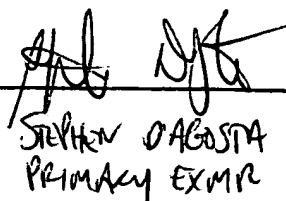 STEPHEN D'AGOSTA
PRIMARY EXMR